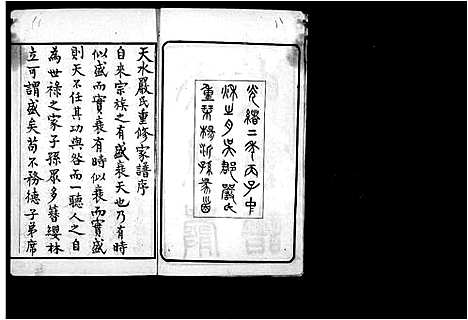 光緒二年丙子中
秌之月吳郡嚴氏
重栞楊沂孫篆耑
天水嚴氏重修家譜序
自來宗族之有盛衰天也乃有時
似盛而實衰有時似衰而實盛
則天不任其功與咎而一聽人之自
為世祿之家子孫眾多簪纓林
立可謂盛矣苟不務德子弟席